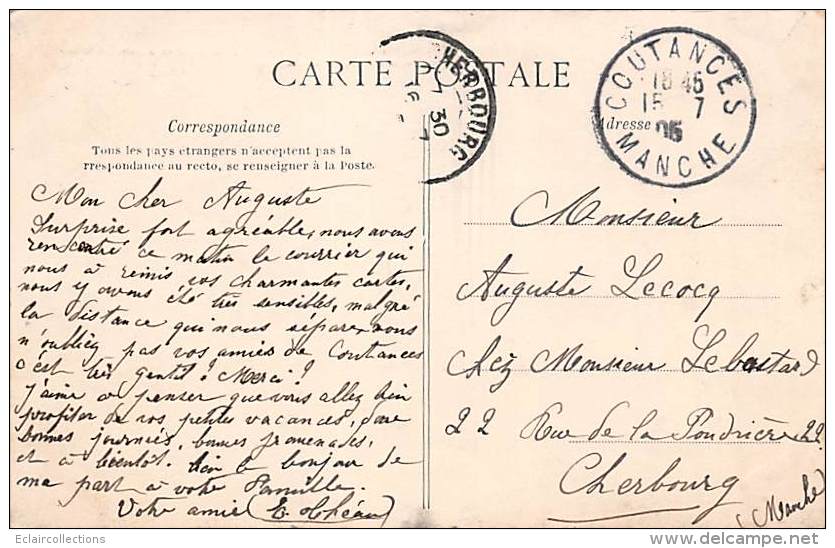 CARTE POSTALE
CHERBOURG
7 30
COUTANCES
18 45
15 7
05
MANCHE
Correspondance
Tous les pays étrangers n'acceptent pas la
rrespondance au recto, se renseigner à la Poste.
Adresse
Mon cher Auguste
Surprise fort agréable, nous avons
rencontré ce matin le courrier qui
nous a remis vos charmantes cartes,
nous y avons été très sensibles, malgré
la distance qui nous sépare vous
n'oubliez pas vos amies de Coutances
c'est très gentil! Merci!
J'aime à penser que vous allez bien
profiter de vos petites vacances,
bonnes journées, bonnes promenades,
et à bientôt. bien le bonjour de
ma part à votre Famille.
Votre amie
Monsieur
Auguste Lecocq
Chez Monsieur Lebastard
22 Rue de la Poudrière 22
Cherbourg
(Manche)
Eclaircollections
delcampe.net